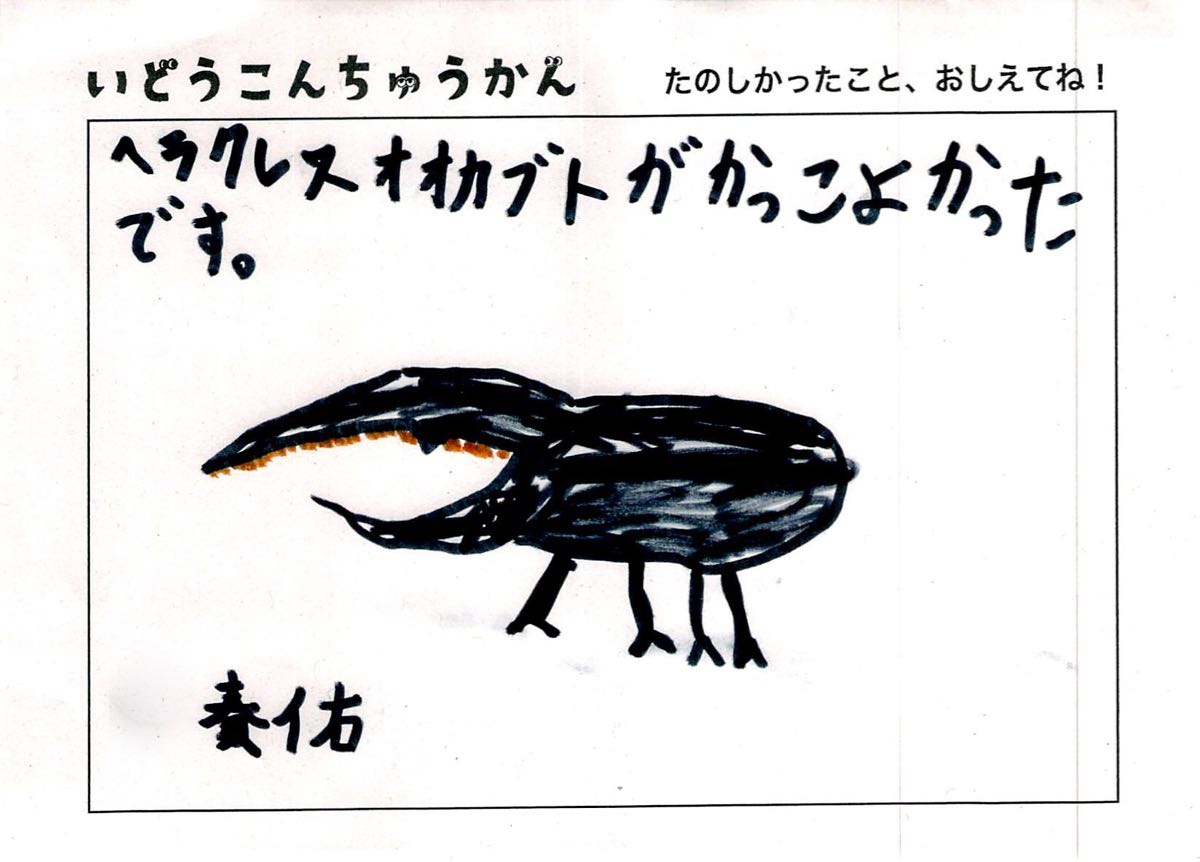 いどうこんちゅうかん
たのしかったこと、おしえてね！
ヘラクレスオオカブトがかっこよかった
です。